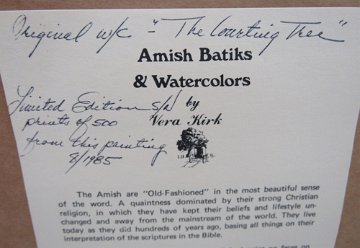 Original w/c - "The Courting Tree"
Amish Batiks
& Watercolors
Limited Edition s/n by
prints of 500 Vera Kirk
from this painting
8/1985
The Amish are "Old-Fashioned" in the most beautiful sense
of the word. A quaintness dominated by their strong Christian
religion, in which they have kept their beliefs and lifestyle un-
changed and away from the mainstream of the world. They live
today as they did hundreds of years ago, basing all things on their
interpretation of the scriptures in the Bible.